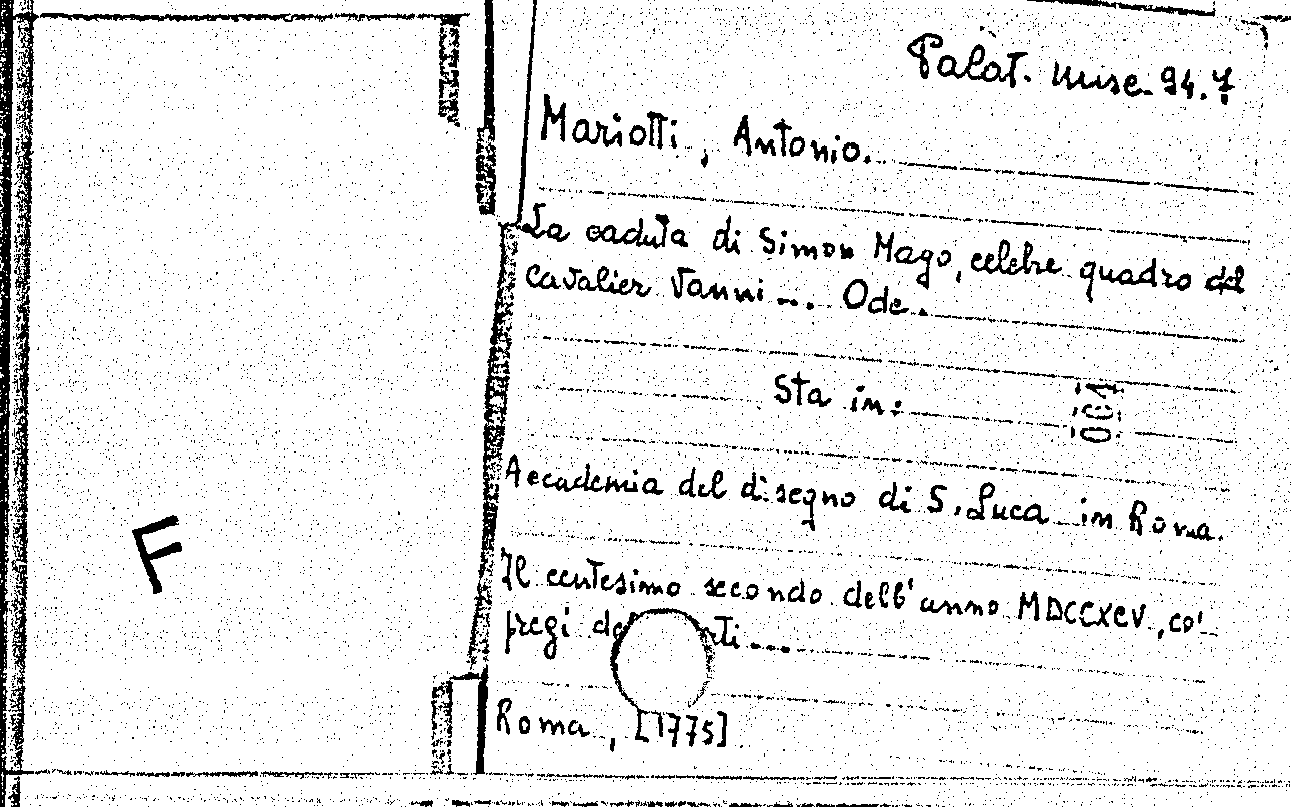 Palat. misc. 94.7
Mariotti, Antonio.
La caduta di Simon Mago, celebre quadro del
Cavalier Vanni... Ode.
Sta in:
001
Accademia del disegno di S. Luca in Roma.
Il centesimo secondo dell'anno MDCCXCV, co'
pregi ti...
Roma, [1775]
F